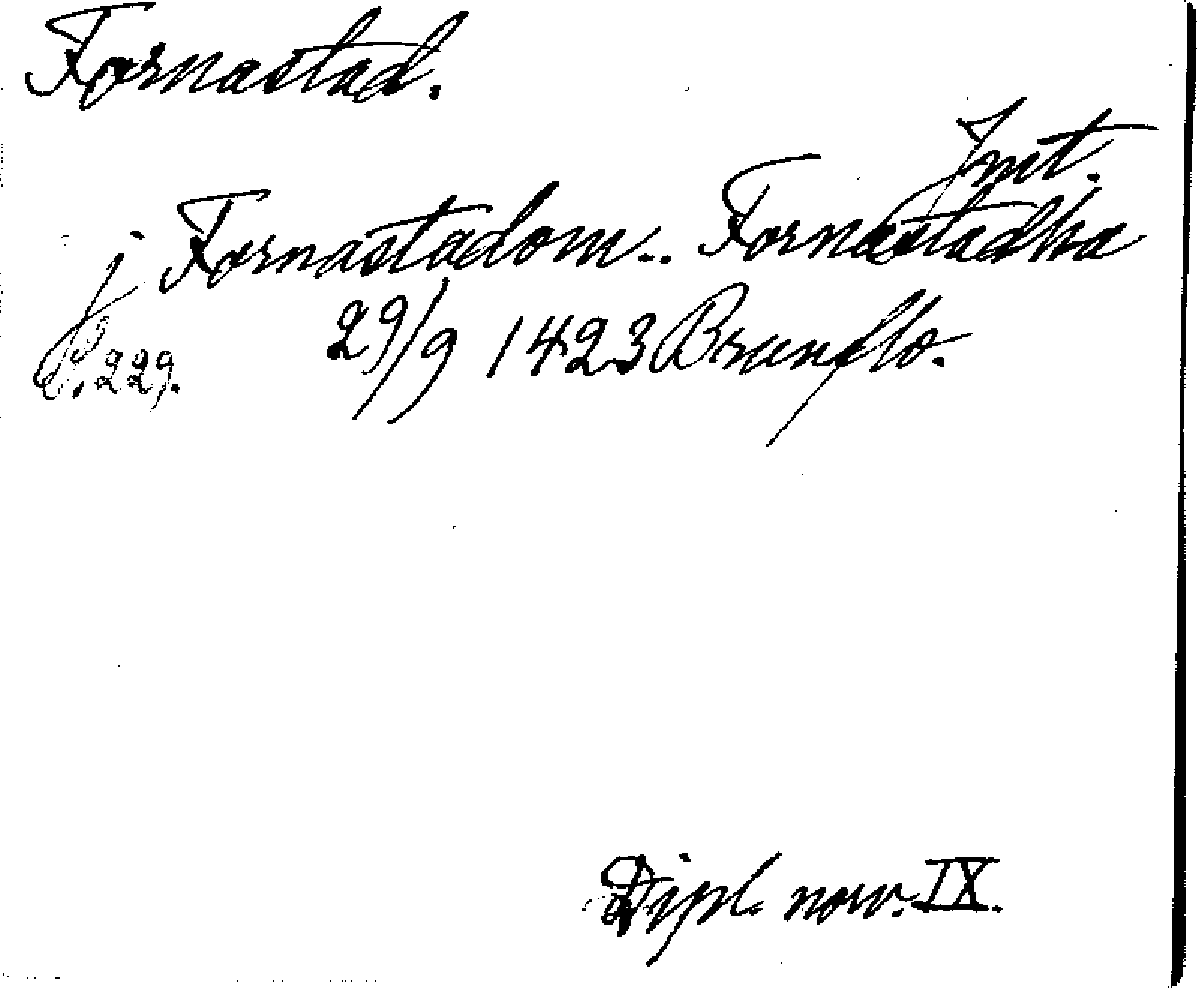 Fornastad.
Jmt.
j Fornastadom.. Fornastadha
S. 229. 29/9 1423 Brunflo.
Dipl. norv. IX.